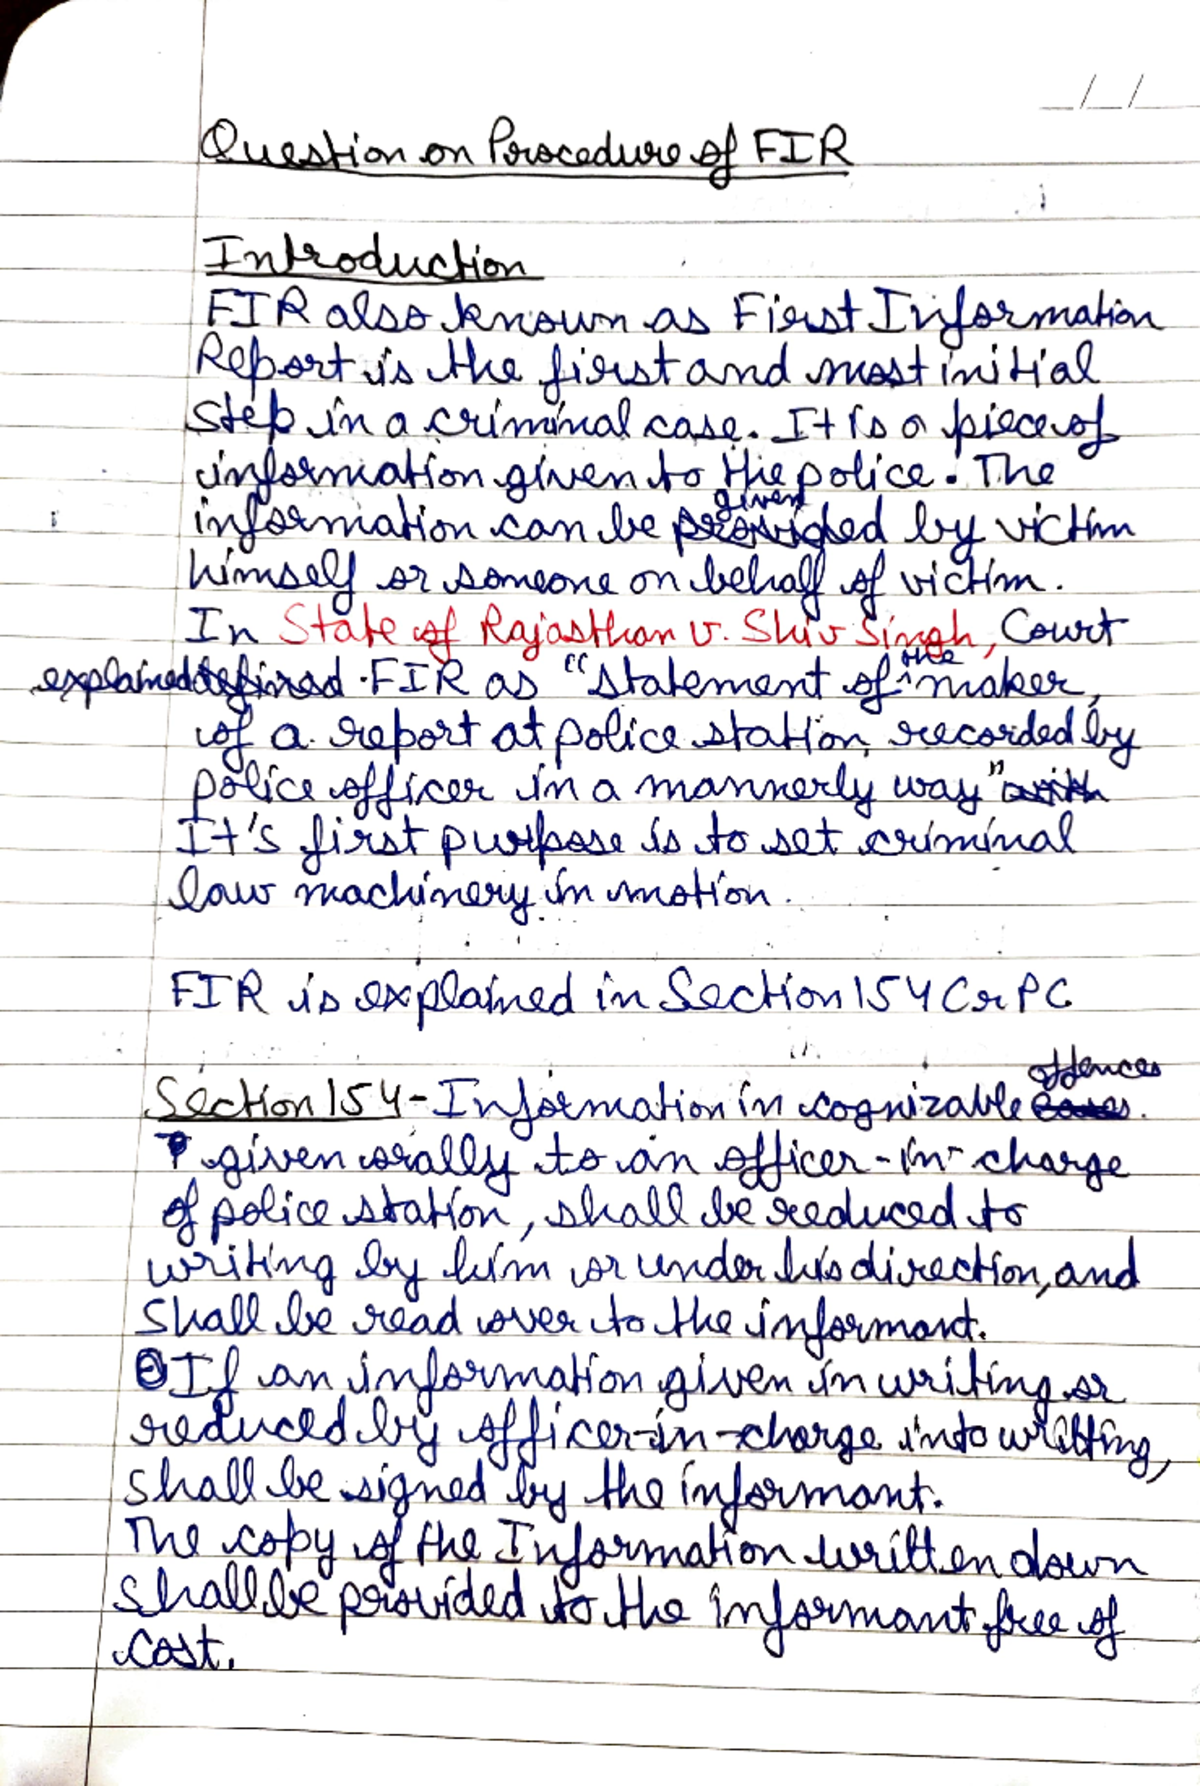 _/_/
Question on Procedure of FIR
Introduction
FIR also known as First Information
Report is the first and most initial
step in a criminal case. It is a piece of
information given to the police. The
information can be given by victim
himself or someone on behalf of victim.
In State of Rajasthan v. Shiv Singh, Court
explained FIR as "statement of the maker,
of a report at police station, recorded by
police officer in a mannerly way"
It's first purpose is to set criminal
law machinery in motion.
FIR is explained in Section 154 CrPC
Section 154 - Information in cognizable offences
given orally to an officer-in-charge
of police station, shall be reduced to
writing by him or under his direction, and
shall be read over to the informant.
If an information given in writing or
reduced by officer-in-charge into writting,
shall be signed by the informant.
The copy of the Information written down
shall be provided to the informant free of
cost.